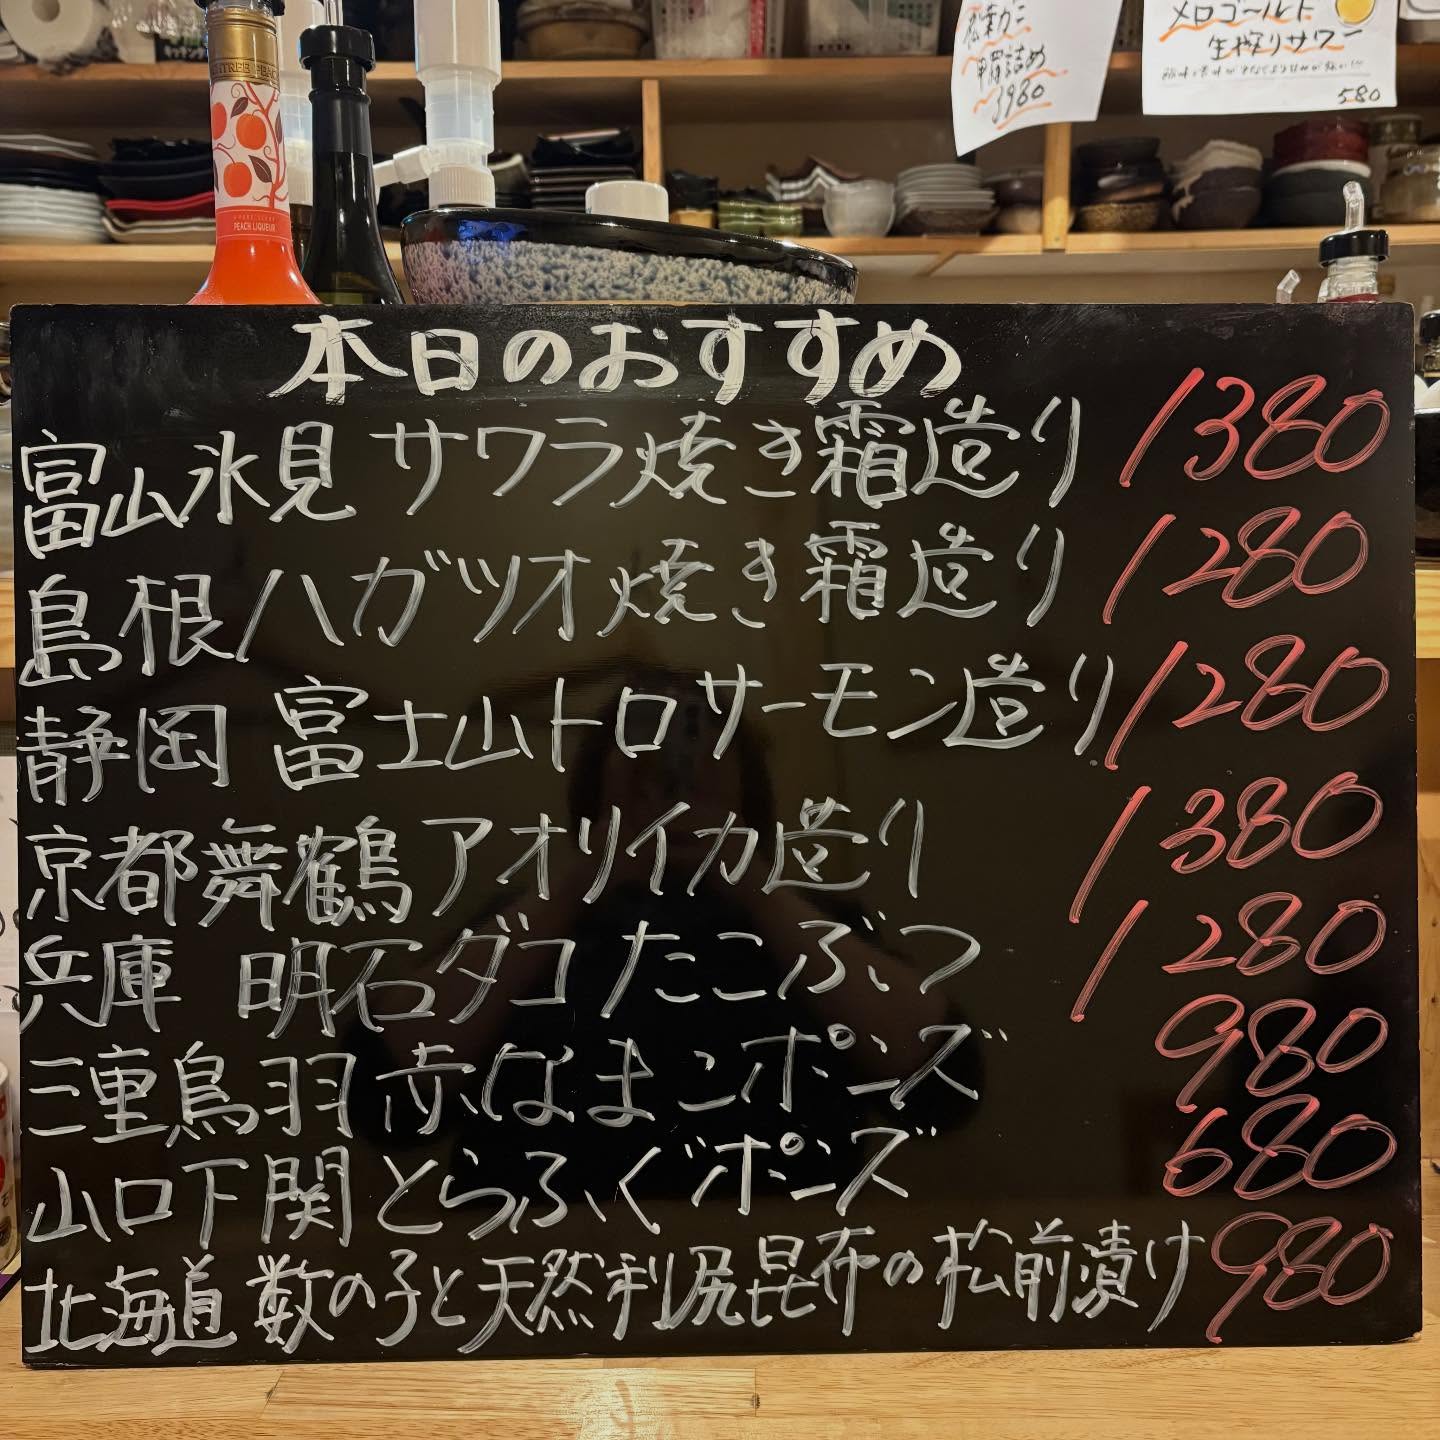 甲羅詰め
3980
メロゴールド
生搾りサワー
580
PEACH LIQUEUR
本日のおすすめ
富山氷見 サワラ焼き霜造り 1380
島根ハガツオ焼き霜造り 1280
静岡 富士山トロサーモン造り 1280
京都舞鶴アオリイカ造り 1380
兵庫 明石ダコ たこぶつ 1280
三重鳥羽 赤なまこポンズ 980
山口下関 とらふぐポンズ 680
北海道 数の子と天然利尻昆布の松前漬け 980